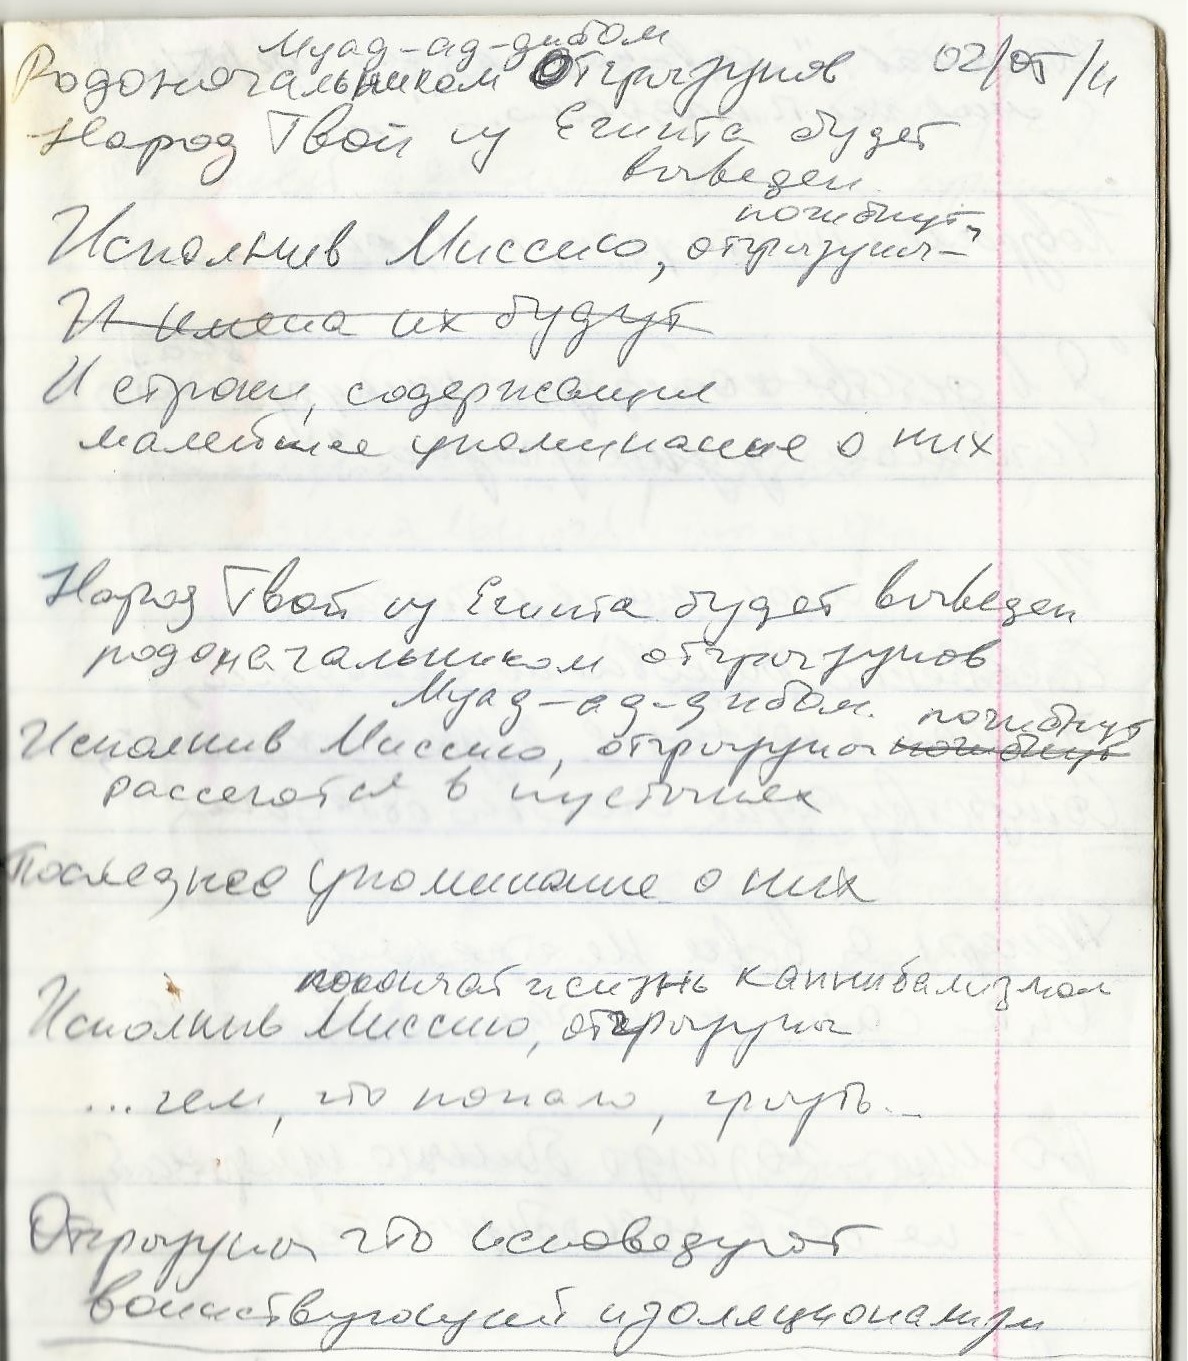 Муад-ад-дибом
Родоначальником Отгрызунов 02/05/11
Народ Твой из Египта будет
выведен
погибнут,
Исполнив Миссию, отгрызуны –
И имена их будут
И строки, содержащие
малейшее упоминание о них
Народ Твой из Египта будет выведен
родоначальником отгрызунов
Муад-ад-дибом.
погибнут
Исполнив Миссию, отгрызуны погибнут
рассеются в пустынях
Последнее упоминание о них
покончат жизнь каннибализмом
Исполнив Миссию, отгрызуны
...чем, что попало, грызть...
Отгрызуны что исповедуют
воинствующий изоляционизм